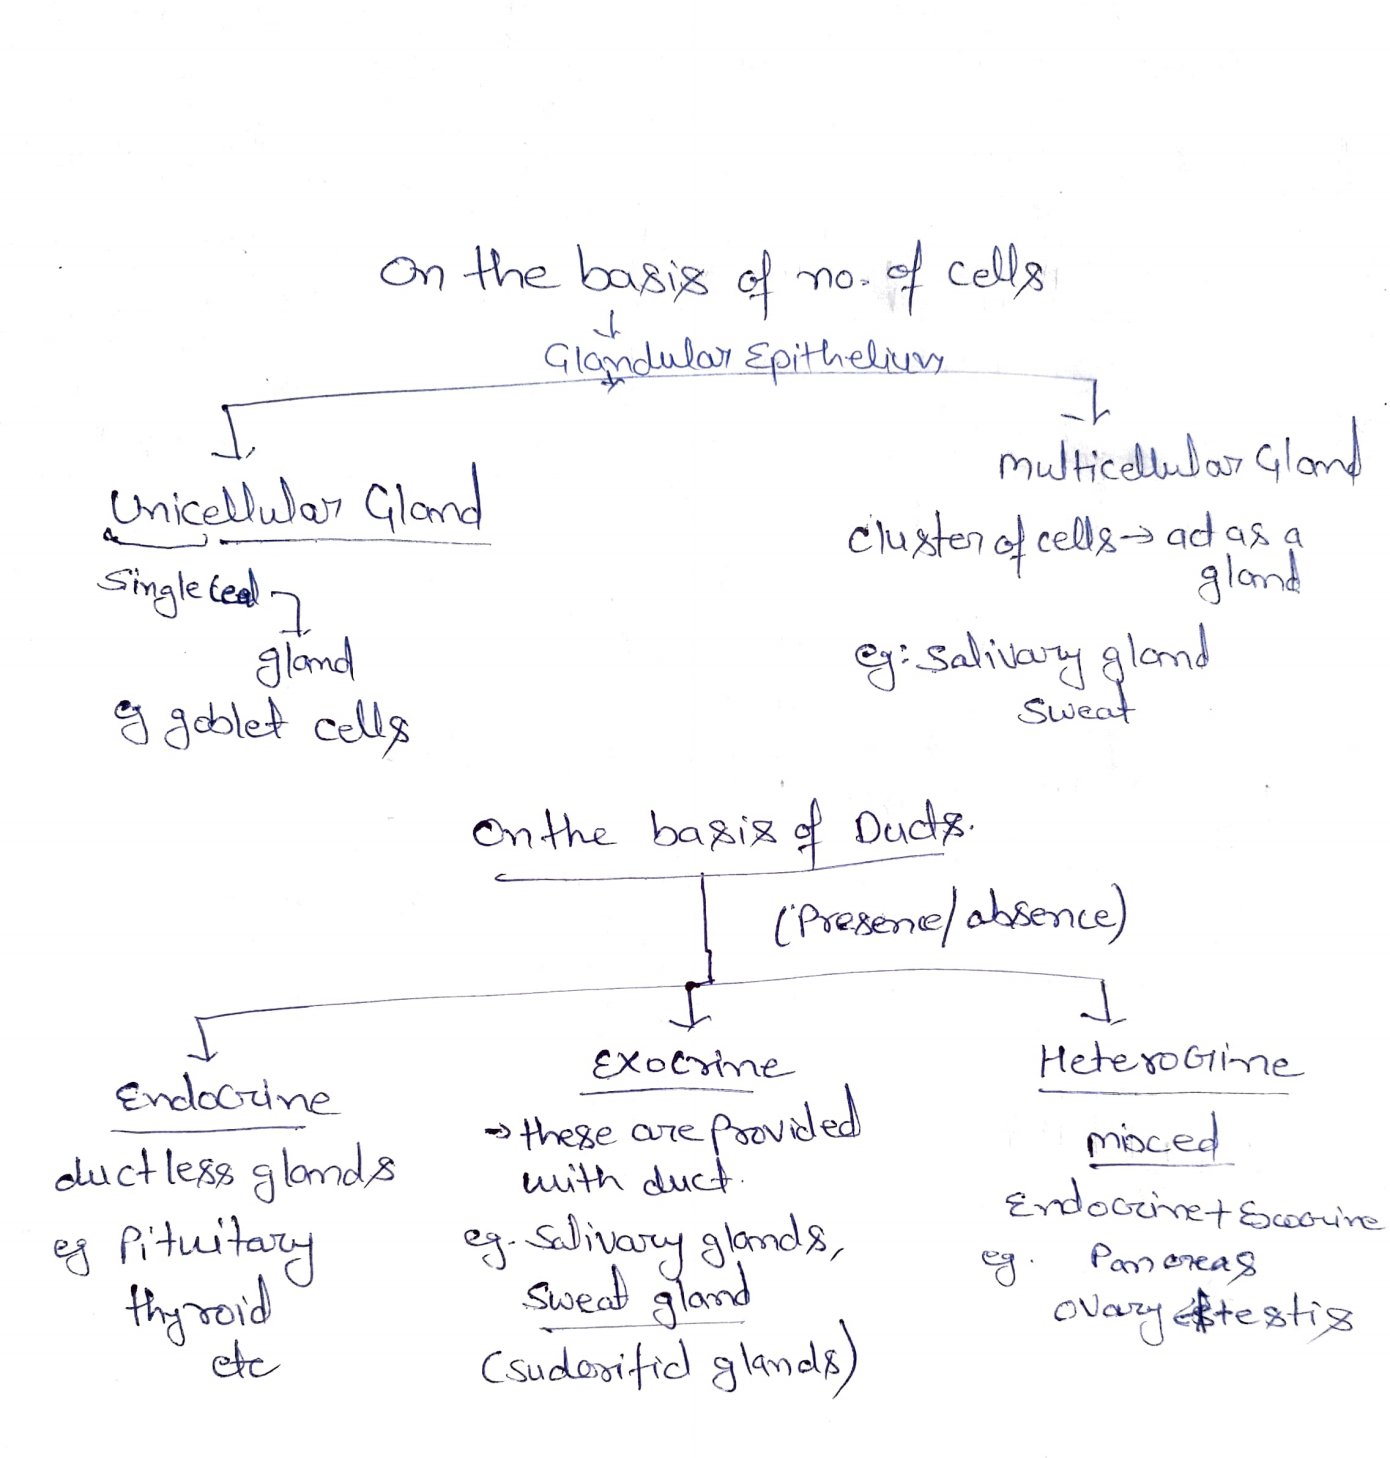 On the basis of no. of cells
Glandular Epithelium
Unicellular Gland
Multicellular Gland
Single cell
gland
eg goblet cells
Cluster of cells → act as a
gland
eg: Salivary gland
Sweat
On the basis of Ducts.
(Presence/absence)
Endocrine
ductless glands
eg Pituitary
thyroid
etc
Exocrine
→ these are provided
with duct.
eg. Salivary glands,
Sweat gland
(sudorific glands)
Heterocrine
mixed
Endocrine + Exocrine
eg. Pancreas
Ovary & testis